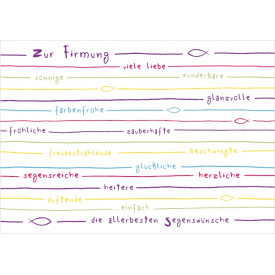 Zur Firmung
viele liebe
sonnige wunderbare
glanzvolle
farbenfrohe
fröhliche zauberhafte
freudestrahlende beschwingte
glückliche
segensreiche herzliche
heitere
duftende
einfach
die allerbesten Segenswünsche